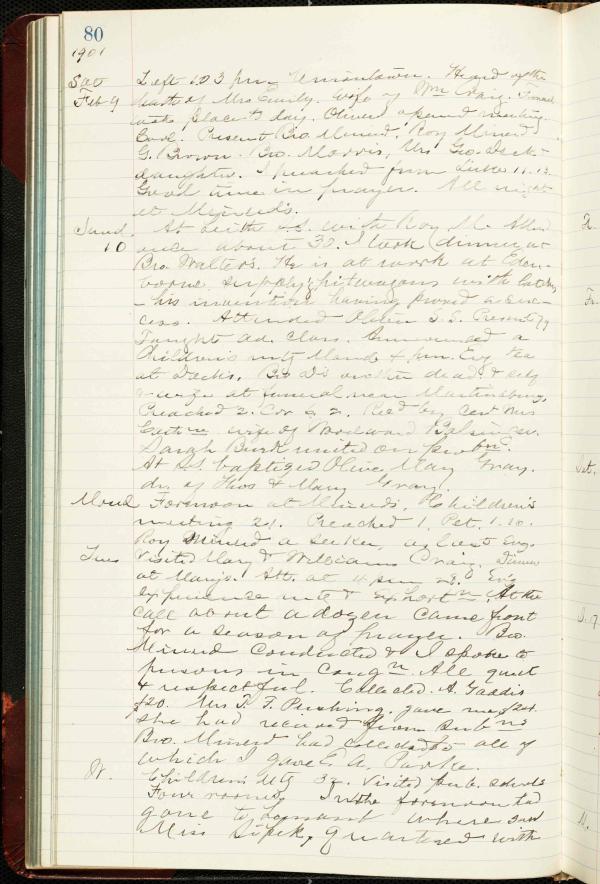 80
1901
Sat Left 1.03 pm Uniontown. Heard of the
Feb 9 death of Mrs Emily. wife of Wm Craig. Funeral
took place to day. Oliver opened meeting.
Eve. Present Bro. Minerd, Roy Minerd
G. Brown. Bro. Morris, Mrs Geo.
daughter. I preached from Luke 11.13.
Good time in prayer. All night
at Minerd's.
Sund. At Leith S.S. with Roy M. Attend
10 ance about 30. I took dinner at
Bro Walters. He is at work at Eden-
borne. pit wagons with
- his invention having proved a suc-
cess. Attended Oliver S.S. Present 79
Taught ad. class. Announced a
Children's mtg Mond. 4 p.m. Evg tea
at Bro D's dead & self
& wife at funeral near Martinsburg.
Preached 2. Cor 2. Recd by Mrs
wife of Woodward
Sarah Burk united on probn.
At S.S. baptized Olive May Gray.
dr. of Thos & Mary Gray.
Mond Forenoon at Minerds. Children's
meeting 21. Preached 1. Pet. 1.10.
Roy Minerd a seeker, as last Evg.
Tues Visited Mary & William Craig. Dinner
at Mary's. Att. at 4 pm Evg
experience mtg & exhortn. At the
call about a dozen came front
for a season of prayer. Bro.
Minerd conducted & I spoke to
persons in congn. All quiet
& respectful. Collected. A. Gaddis
$20. Mrs T. F. gave me $24.
she had received from subns
Bro. Minerd had collected all of
which I gave G. A. Parke.
W. Children's Mtg 37. Visited pub. schools
Four rooms. In the forenoon had
gone to Lemont where saw
Miss quartered with